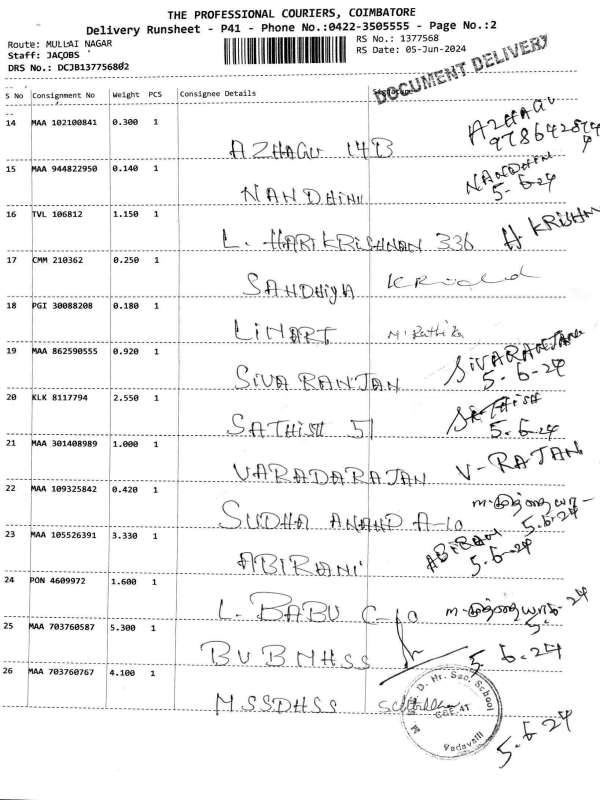 THE PROFESSIONAL COURIERS, COIMBATORE
Delivery Runsheet - P41 - Phone No.:0422-3505555 - Page No.:2
Route: MULLAI NAGAR
Staff: JACOBS
DRS No.: DCJB137756802
RS No.: 1377568
RS Date: 05-Jun-2024
DOCUMENT DELIVERY
S No Consignment No Weight PCS Consignee Details
14 MAA 102100841 0.300 1 AZHAGU 14B AZHAGU
15 MAA 944822950 0.140 1 NANDHINI NANDHINI 5-6-24
16 TVL 106812 1.150 1 L. HARIKRISHNAN 336 H KRISHN
17 CMM 210362 0.250 1 SANDHIYA
18 PGI 30088208 0.180 1 LINART M. Rathika
19 MAA 862590555 0.920 1 SIVARANJAN SIVARANJANI 5-6-24
20 KLK 8117794 2.550 1 SATHISH 51 SATHISH 5-6-24
21 MAA 301408989 1.000 1 VARADARAJAN V-RAJAN
22 MAA 109325842 0.420 1 SUDHA ANAND A-10 5.6.24
23 MAA 105526391 3.330 1 ABIRAMI ABIRAMI 5.6.24
24 PON 4609972 1.600 1 L. BABU C-10
25 MAA 703760587 5.300 1 BVBMHSS 5-6-24
26 MAA 703760767 4.100 1 MSSDHSS 5-6-24
D. Hr. Sec. School
Vadavalli